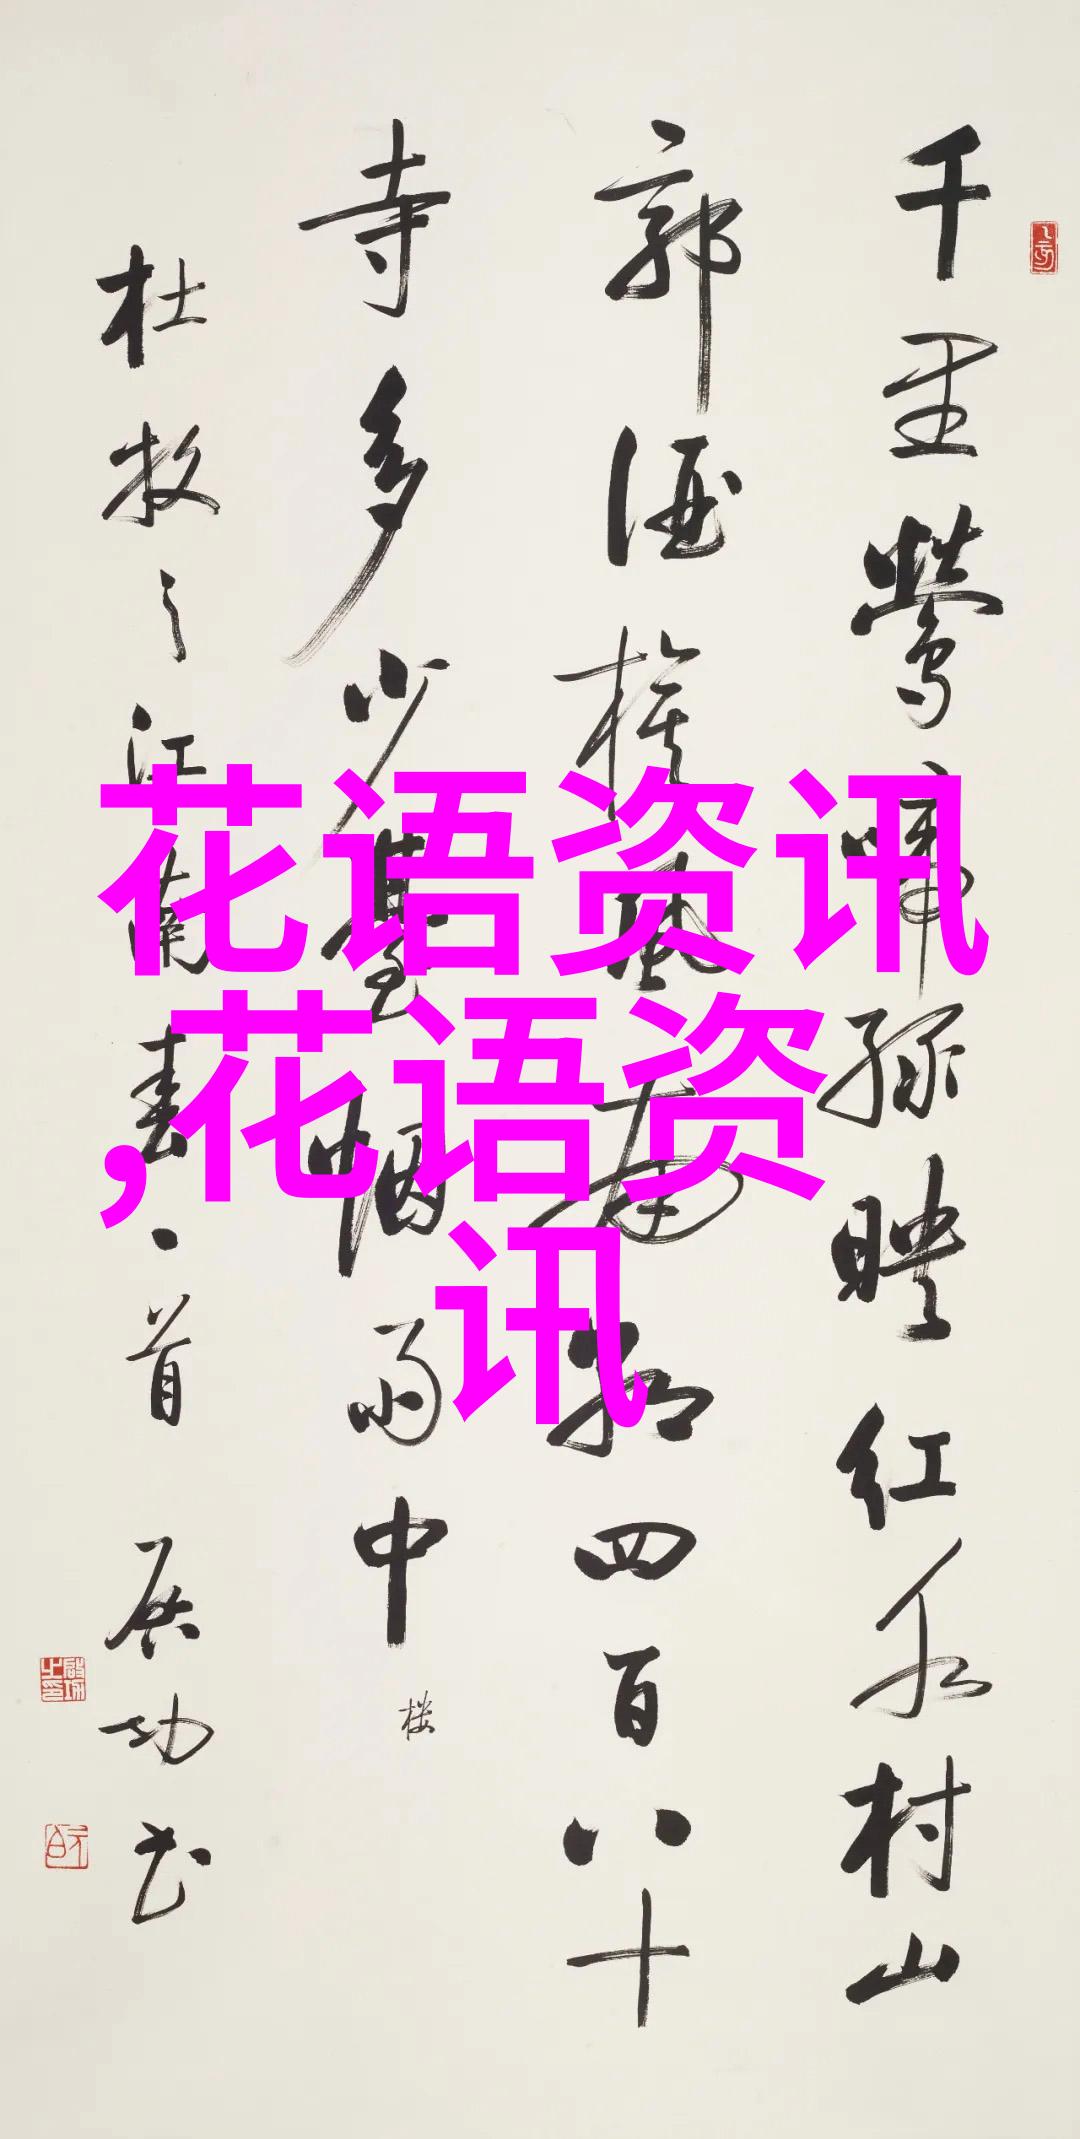 千里鶯啼绿映红水村山
郭酒旗風南朝四百八十
寺多少臺烟雨中楼
杜牧之江南春一首 启功书
花语资讯
,花语资
讯